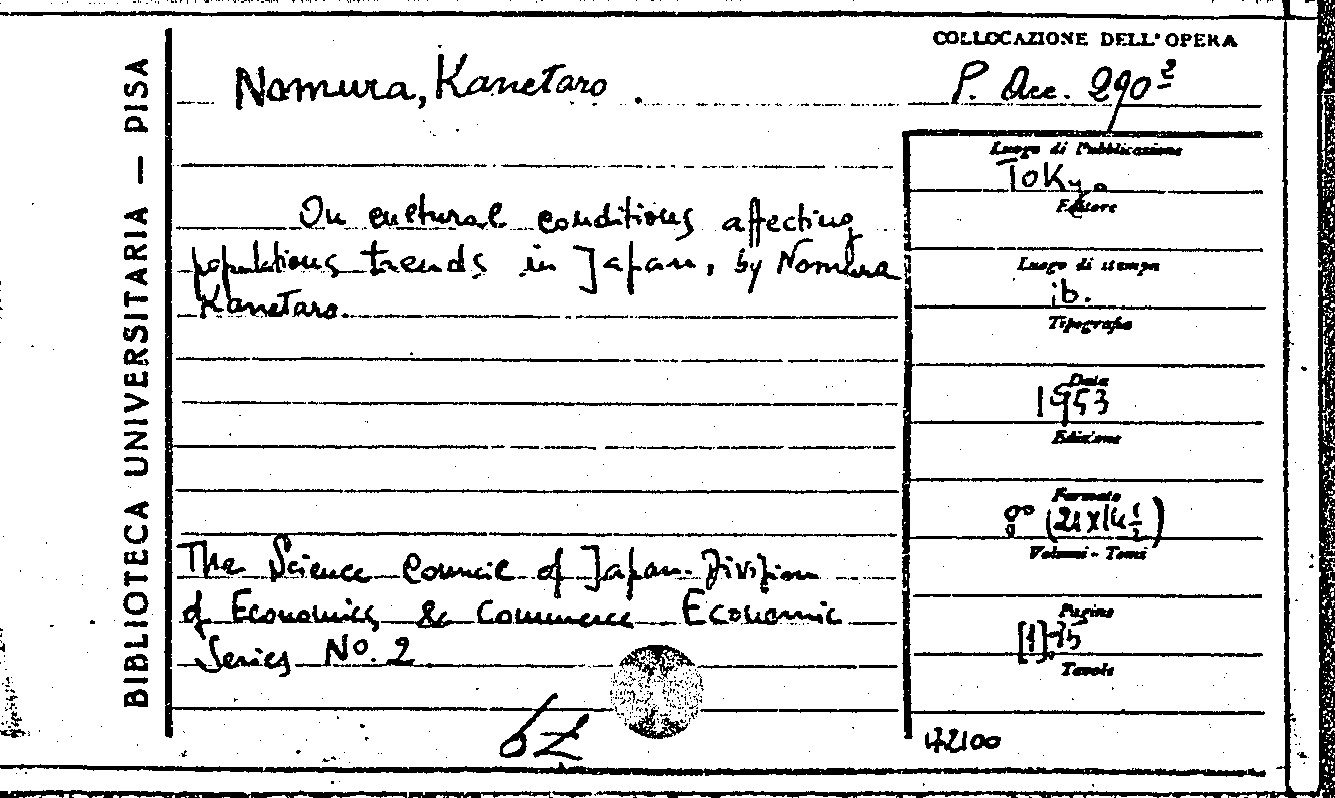 COLLOCAZIONE DELL'OPERA
Nomura, Kanetaro.
P. Acc. 290²
BIBLIOTECA UNIVERSITARIA — PISA
Luogo di Pubblicazione
Tokyo
Editore
On cultural conditions affecting
populations trends in Japan, by Nomura
Kanetaro.
Luogo di stampa
ib.
Tipografia
Data
1953
Edizione
Formato
8° (21x14½)
Volumi - Tomi
The Science Council of Japan. Division
of Economics & Commerce Economic
Series N°. 2
Pagine
[1], 15
Tavole
62
42100